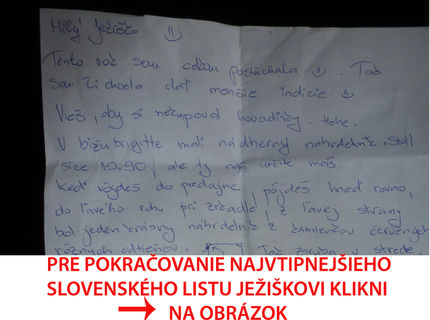 Milý Ježiško
Tento rok som celkom poslúchala . Tak
som Ti chcela dať menšie indície.
Vieš, aby si nekupoval hovadinky. Hehe.
V bižu brigitte mali nádherný náhrdelník. Stál
síce 19.90, ale ty naň určite máš.
Keď vojdeš do predajne, pôjdeš hneď rovno,
do ľavého rohu pri zrkadle, z ľavej strany
bol jeden krásny náhrdelník z kamienkov červených
rôznych odtieňov. Tak zhruba v strede.
PRE POKRAČOVANIE NAJVTIPNEJŠIEHO
SLOVENSKÉHO LISTU JEŽIŠKOVI KLIKNI
NA OBRÁZOK